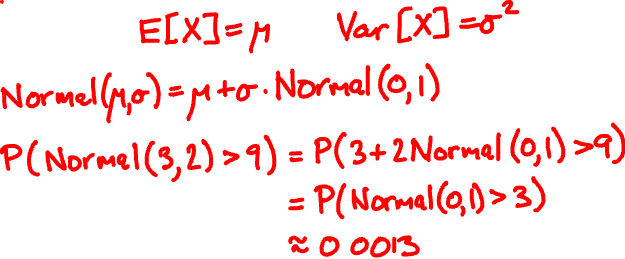 E[X]=μ Var[X]=σ²
Normal(μ,σ)=μ+σ·Normal(0,1)
P(Normal(3,2)>9)=P(3+2Normal(0,1)>9)
=P(Normal(0,1)>3)
≈0 0013